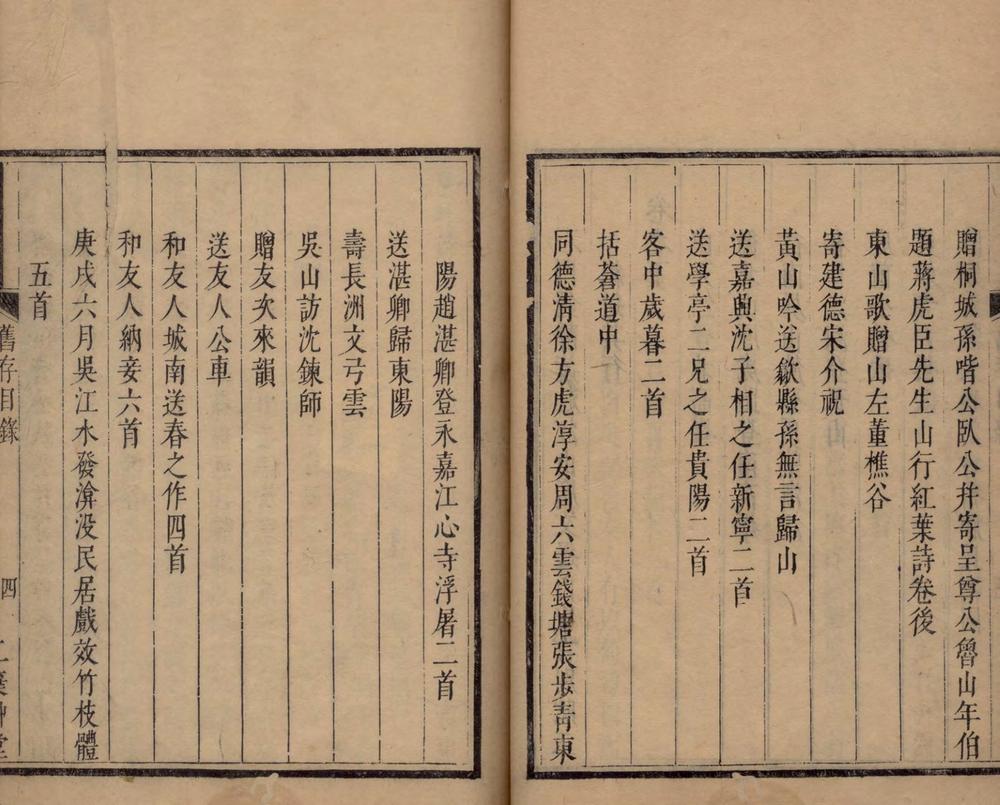 贈桐城孫喈公臥公幷寄呈尊公魯山年伯
題蔣虎臣先生山行紅葉詩卷後
東山歌贈山左董樵谷
寄建德宋介祝
黃山吟送歙縣孫無言歸山
送嘉興沈子相之任新寧二首
送學亭二兄之任貴陽二首
客中歲暮二首
括蒼道中
同德淸徐方虎淳安周六雲錢塘張步靑東
陽趙湛卿登永嘉江心寺浮屠二首
送湛卿歸東陽
壽長洲文弓雲
吳山訪沈鍊師
贈友次來韻
送友人公車
和友人城南送春之作四首
和友人納妾六首
庚戌六月吳江水發渰没民居戲效竹枝體
五首
舊存目錄
四